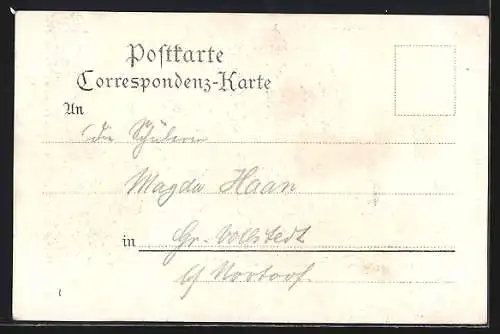 Postkarte
Correspondenz-Karte
An
die Schülerin
Magda Haan
in Gr. Vollstedt
b/ Nortorf.